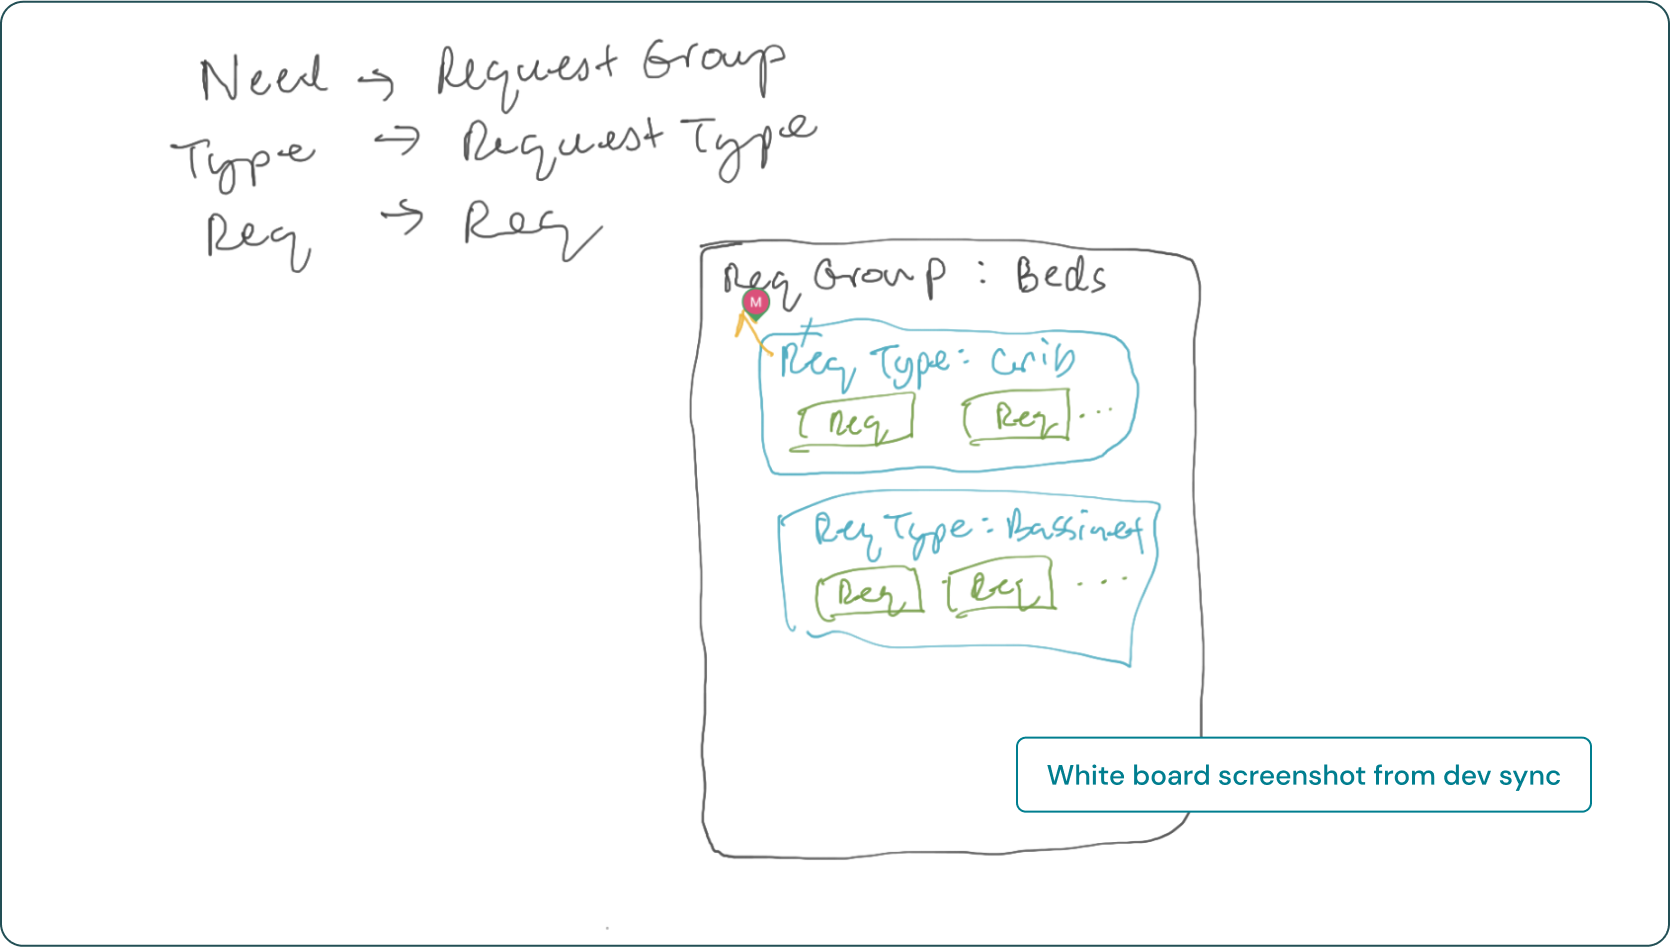 Need → Request Group
Type → Request Type
Req → Req
Req Group : Beds
M
Req Type: Crib
Req Req ...
Req Type: Bassinet
Req Req ...
White board screenshot from dev sync